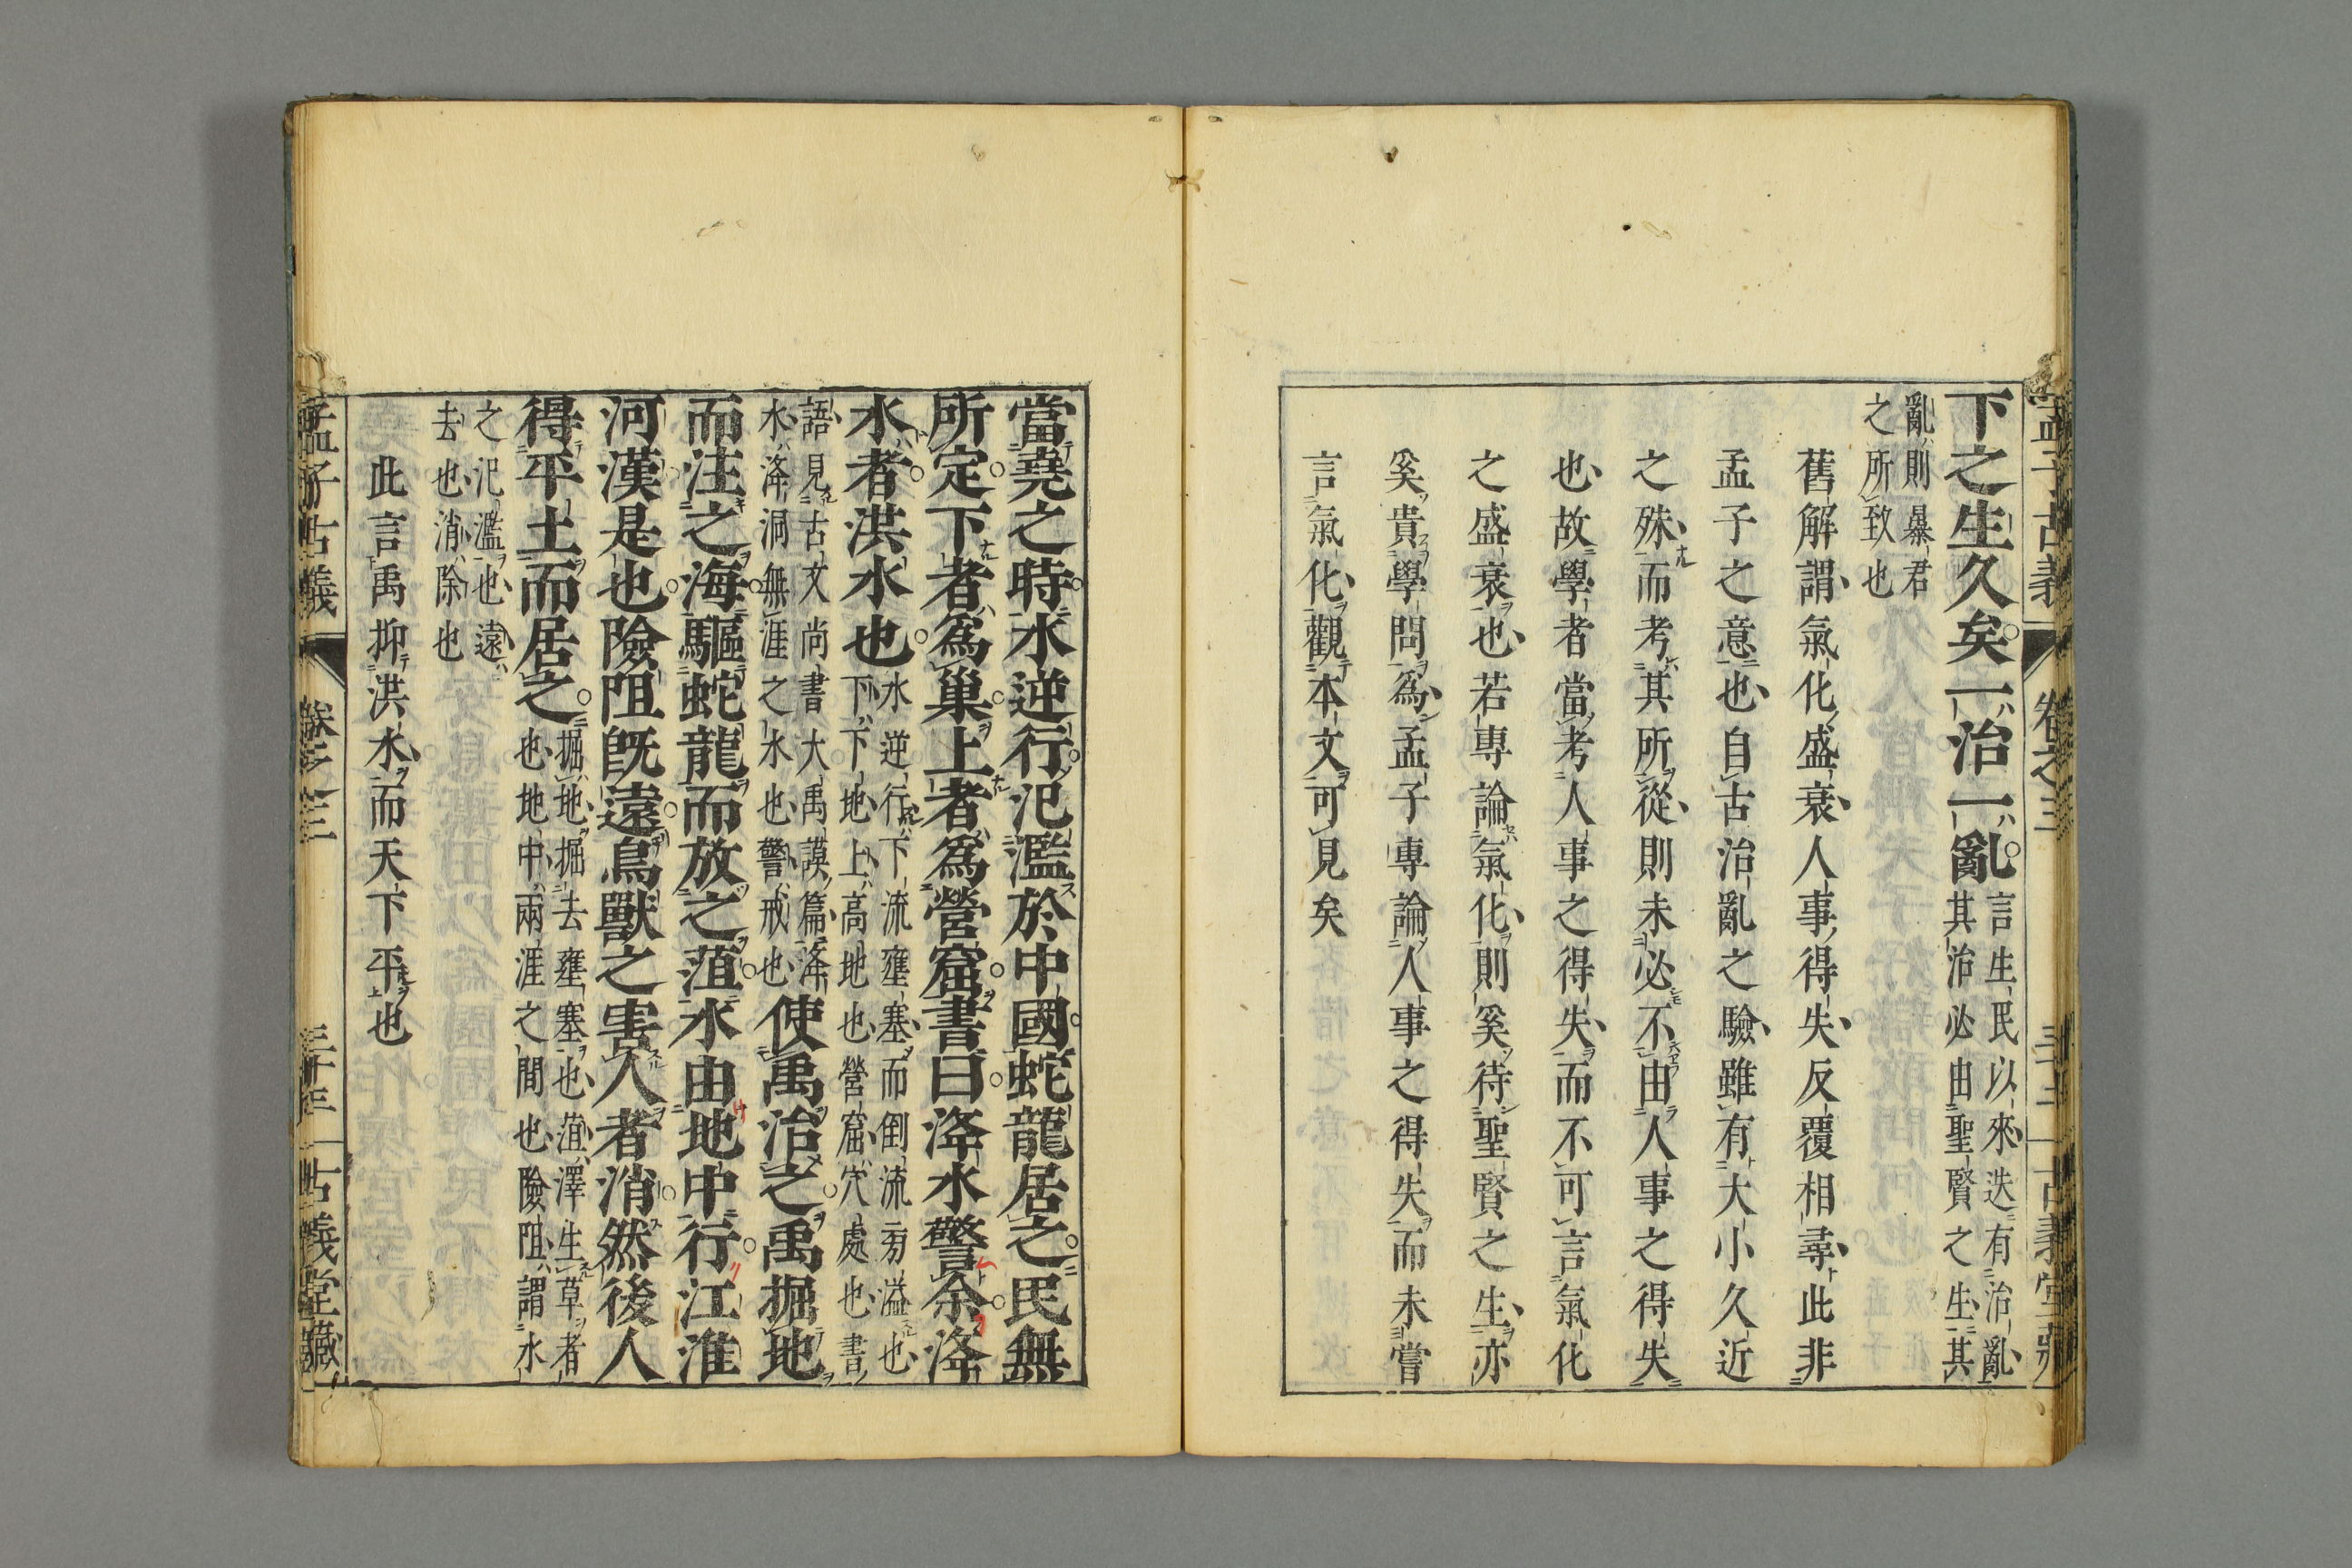 下之生久矣一治一亂言生民以來迭有治亂
其治必由聖賢之生其
亂則暴君
之所致也
舊解謂氣化盛衰人事得失反覆相尋此非
孟子之意也自古治亂之驗雖有大小久近
之殊而考其所從則未必不由人事之得失
也故學者當考人事之得失而不可言氣化
之盛衰也若專論氣化則奚待聖賢之生亦
奚貴學問爲孟子專論人事之得失而未嘗
言氣化觀本文可見矣
當堯之時水逆行氾濫於中國蛇龍居之民無
所定下者爲巢上者爲營窟書曰洚水警余洚
水者洪水也水逆行下流壅塞而倒流旁溢也
下下地上高地也營窟穴處也書
語見古文尚書大禹謨篇洚
水洚洞無涯之水也警戒也
使禹治之禹掘地
而注之海驅蛇龍而放之菹水由地中行江淮
河漢是也險阻旣遠鳥獸之害人者消然後人
得平土而居之掘地掘去壅塞也菹澤生草者
也地中兩涯之間也險阻謂水
之氾濫也遠
去也消除也
此言禹抑洪水而天下平也
孟子古義 卷之三 古義堂藏